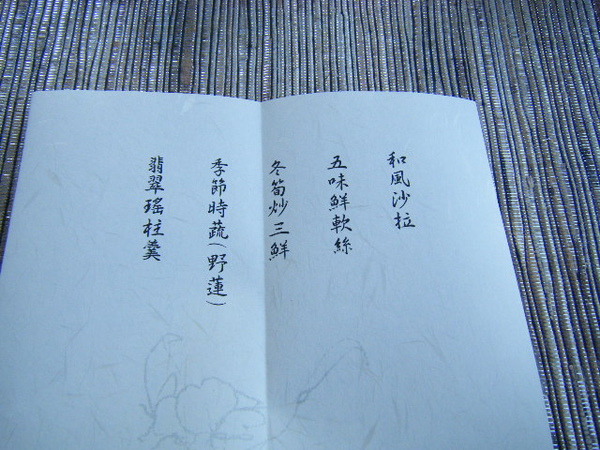 和風沙拉
五味鮮軟絲
冬筍炒三鮮
季節時蔬(野蓮)
翡翠瑤柱羹